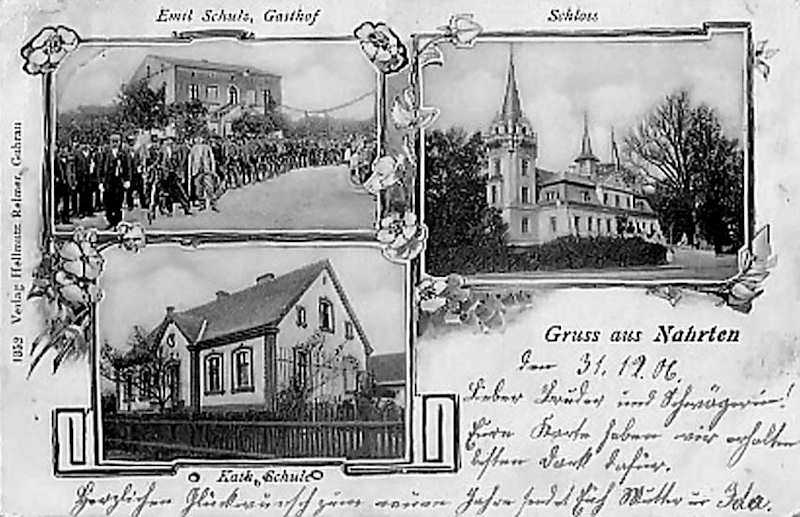 Emil Schulz, Gasthof
Schloss
1352 Verlag Hellmutz Reimer, Guhrau
Kath. Schule
Gruss aus Nahrten
den 31.12.06.
Lieber Bruder und Schwägerin!
Eure Karte haben wir erhalten
besten Dank dafür.
Herzlichen Glückwunsch zum neuen Jahre sendet Euch Mutter u Ida.